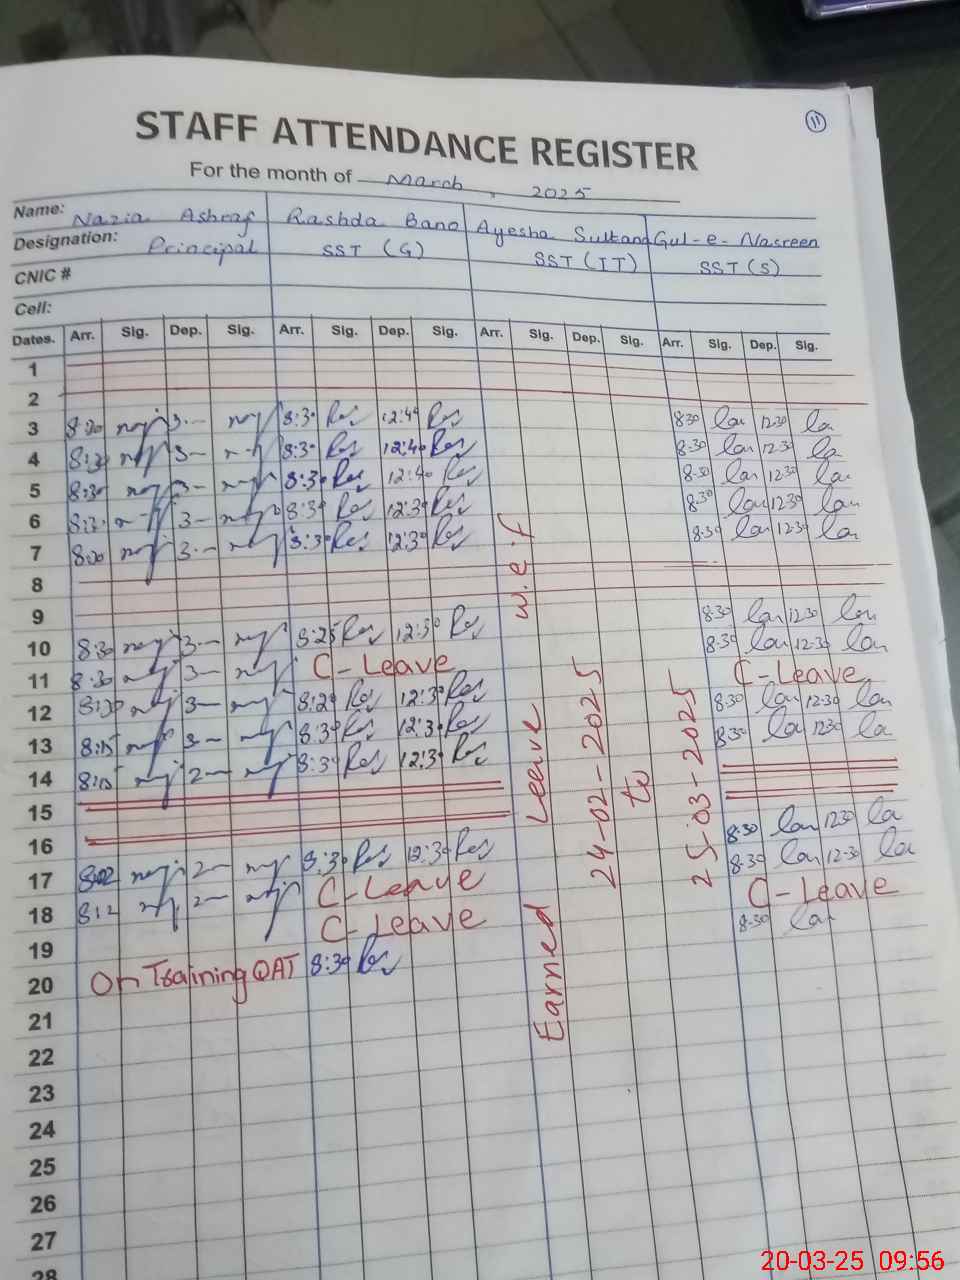 11
STAFF ATTENDANCE REGISTER
For the month of March, 2025
Name: Nazia Ashraf Rashda Bano Ayesha Sultana Gul-e-Nasreen
Designation: Principal SST (G) SST (IT) SST (S)
CNIC #
Cell:
Dates. Arr. Sig. Dep. Sig. Arr. Sig. Dep. Sig. Arr. Sig. Dep. Sig. Arr. Sig. Dep. Sig.
1
2
3 8:30 3- 8:30 12:40 8:30 12:30
4 8:30 3- 8:30 12:40 8:30 12:30
5 8:30 3- 8:30 12:40 8:30 12:30
6 3- 8:30 12:30 8:30 12:30
7 8:00 3- 8:30 12:30 8:30 12:30
8
9
10 8:30 3- 8:25 12:30 8:30 12:30
11 8:30 3- C-Leave 8:30 12:30
12 8:30 3- 8:29 12:30 C-Leave
13 8:15 3- 8:30 12:30 8:30 12:30
14 8:15 2- 8:30 12:30 8:30 12:30
15
16
17 8:02 2- 8:30 12:30 8:30 12:30
18 8:12 2- C-Leave 8:30 12:30
19 C-Leave C-Leave
20 On Training QAT 8:30 8:30
21
22
23
24
25
26
27
28
Earned Leeive w.e.f
24-02-2025
to
25-03-2025
20-03-25 09:56